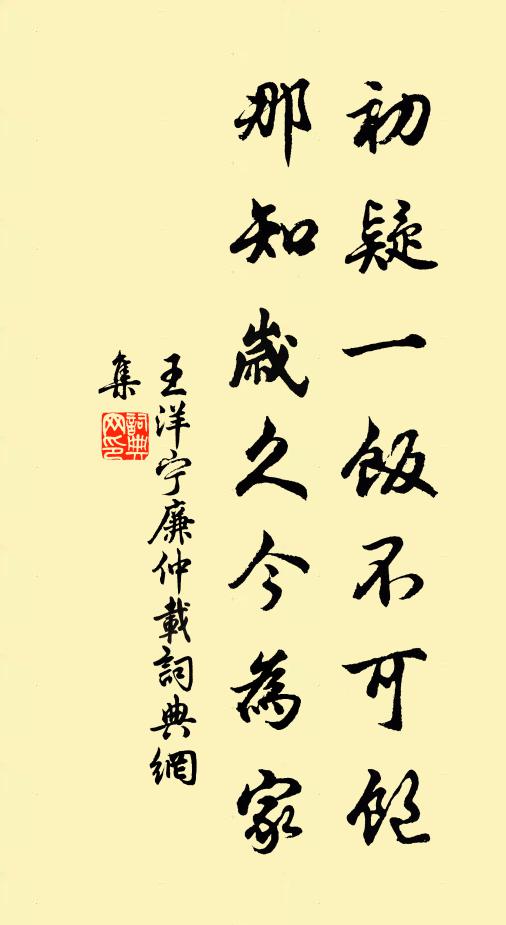 初疑一飯不可飽
那知歲久今為家
王洋宁廉仲載詞典網
集
詞典網印